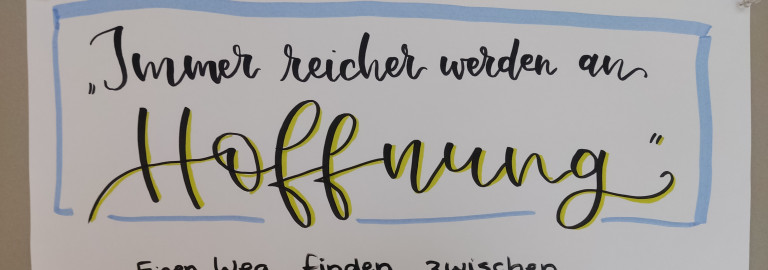 „Immer reicher werden an
Hoffnung“
Einen Weg finden zwischen